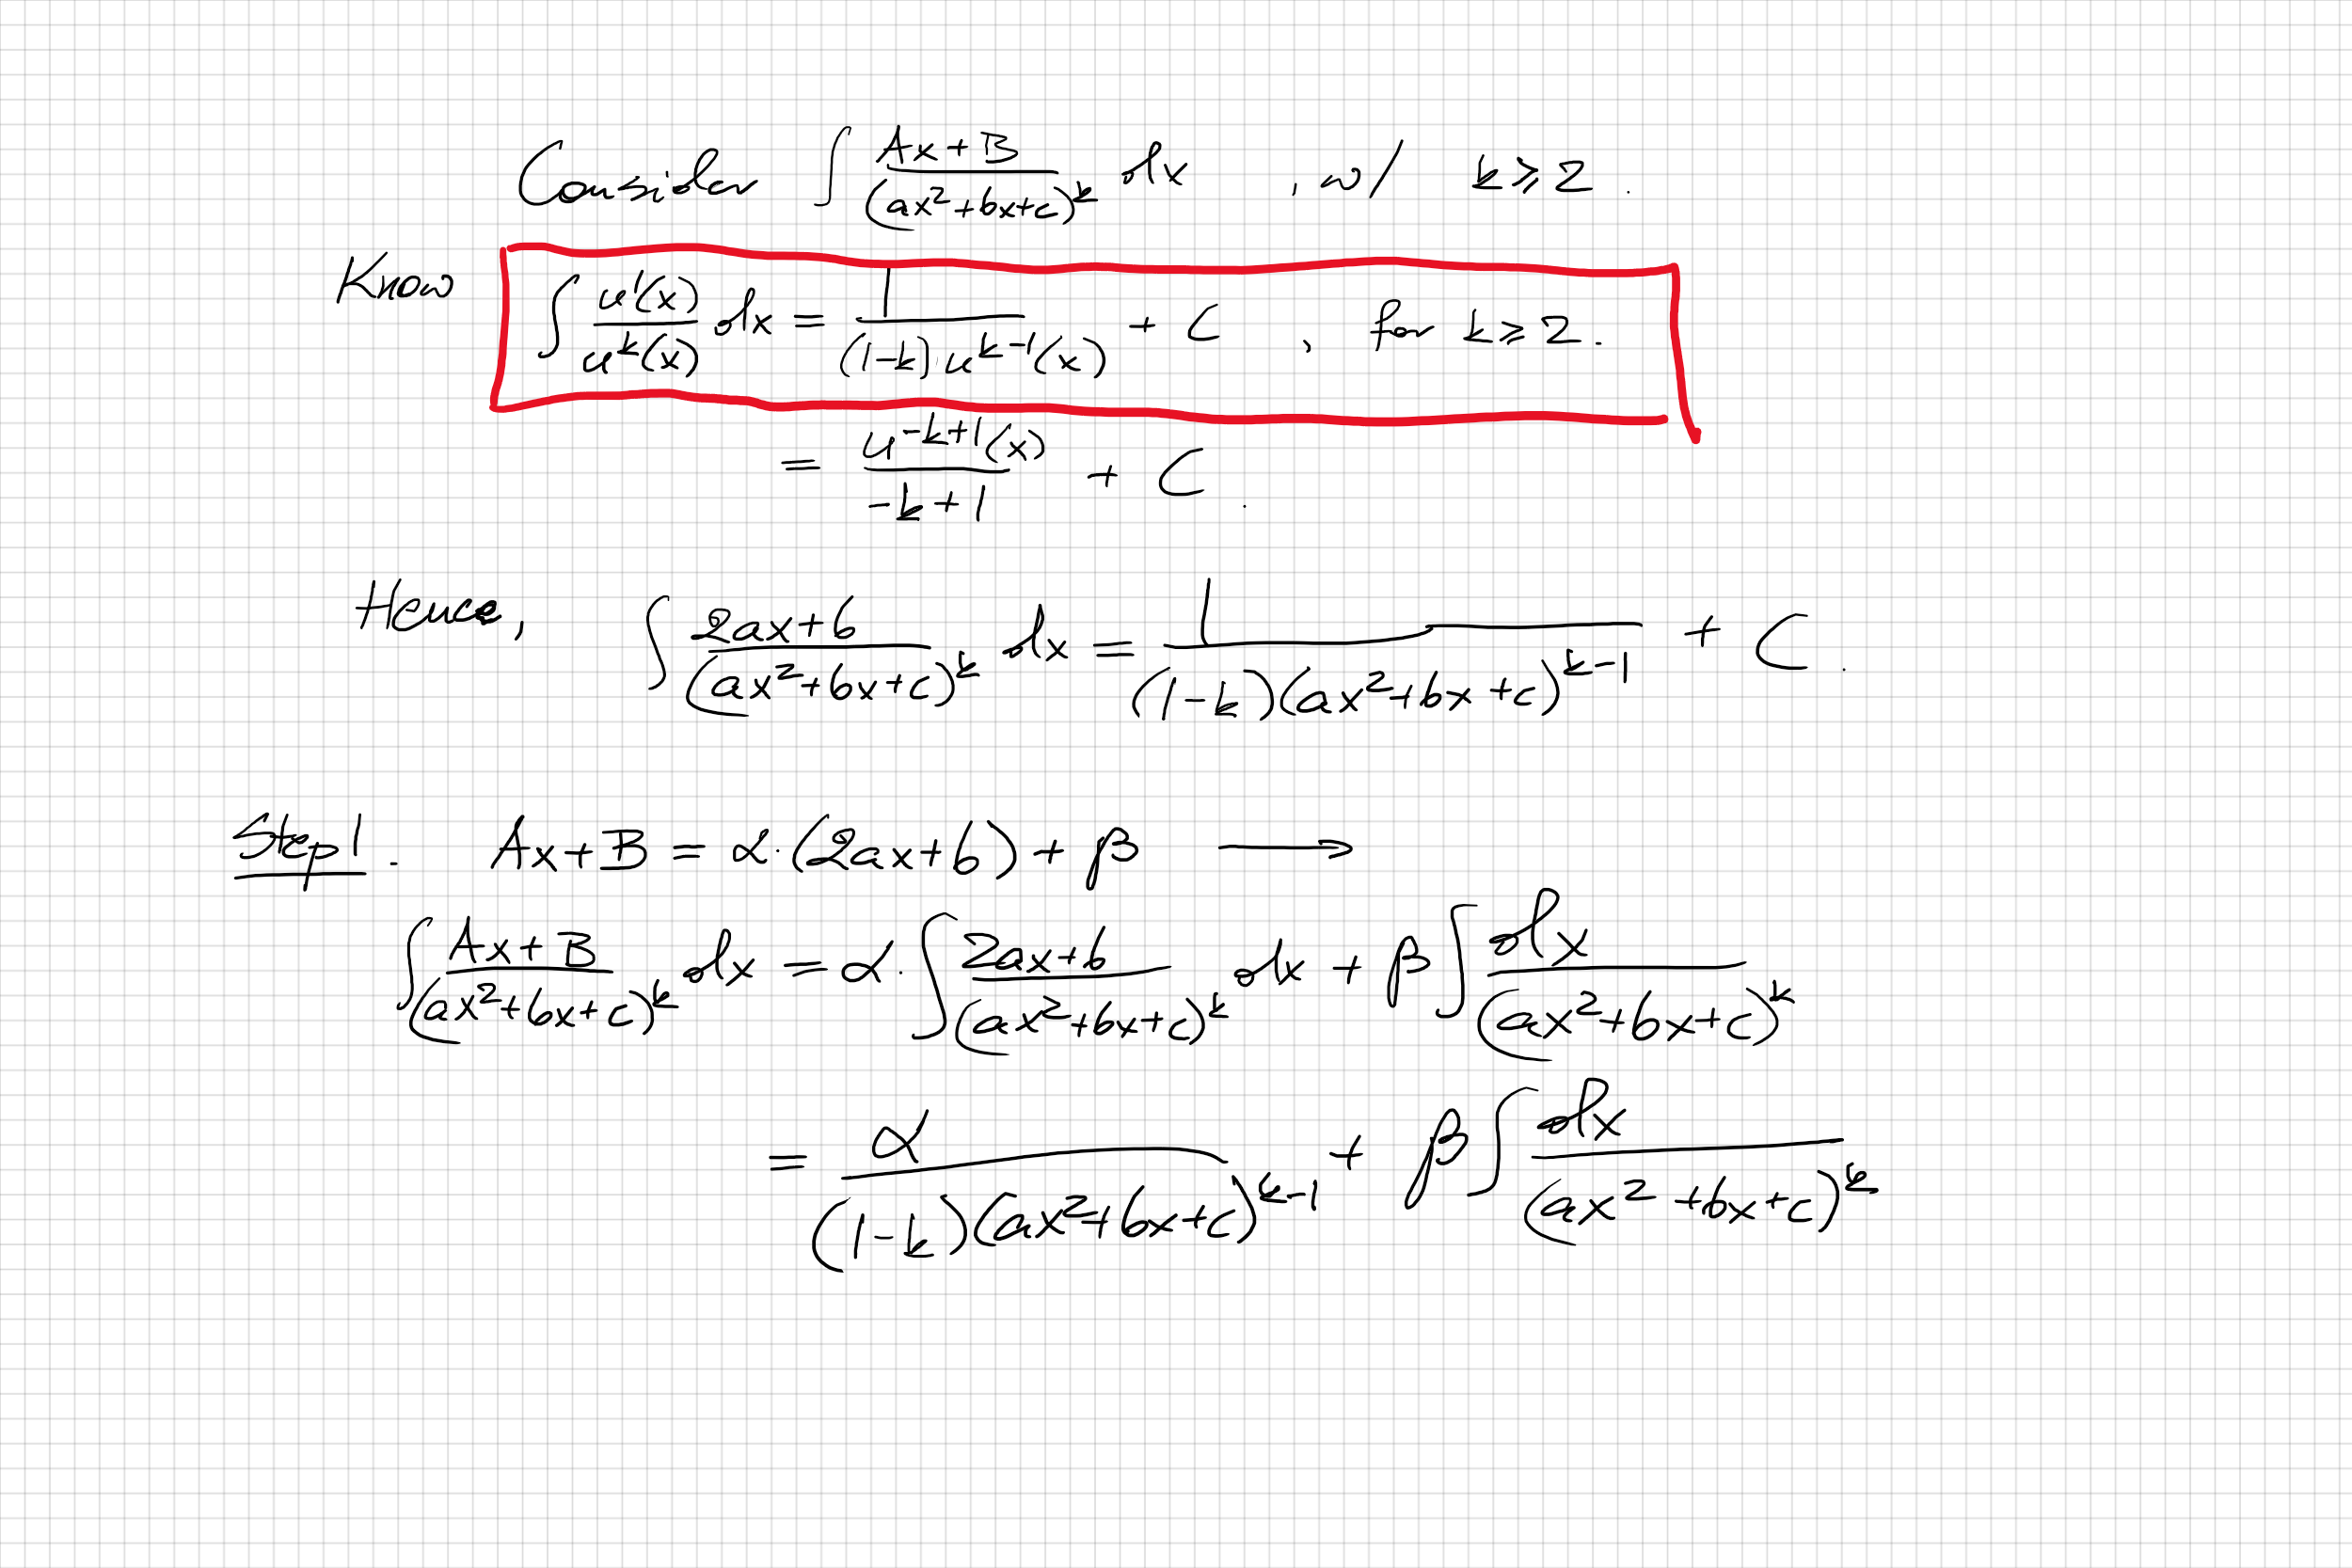 Consider ∫ (Ax+B)/(ax²+bx+c)^k dx , w/ k⩾2.
Know ∫ u'(x)/u^k(x) dx = 1/((1-k) u^(k-1)(x)) + C , for k⩾2.
= u^(-k+1)(x)/(-k+1) + C.
Hence, ∫ (2ax+b)/(ax²+bx+c)^k dx = 1/((1-k)(ax²+bx+c)^(k-1)) + C.
Step 1. Ax+B = α·(2ax+b)+β ⟶
∫ (Ax+B)/(ax²+bx+c)^k dx = α·∫ (2ax+b)/(ax²+bx+c)^k dx + β∫ dx/(ax²+bx+c)^k
= α/((1-k)(ax²+bx+c)^(k-1)) + β∫ dx/(ax²+bx+c)^k